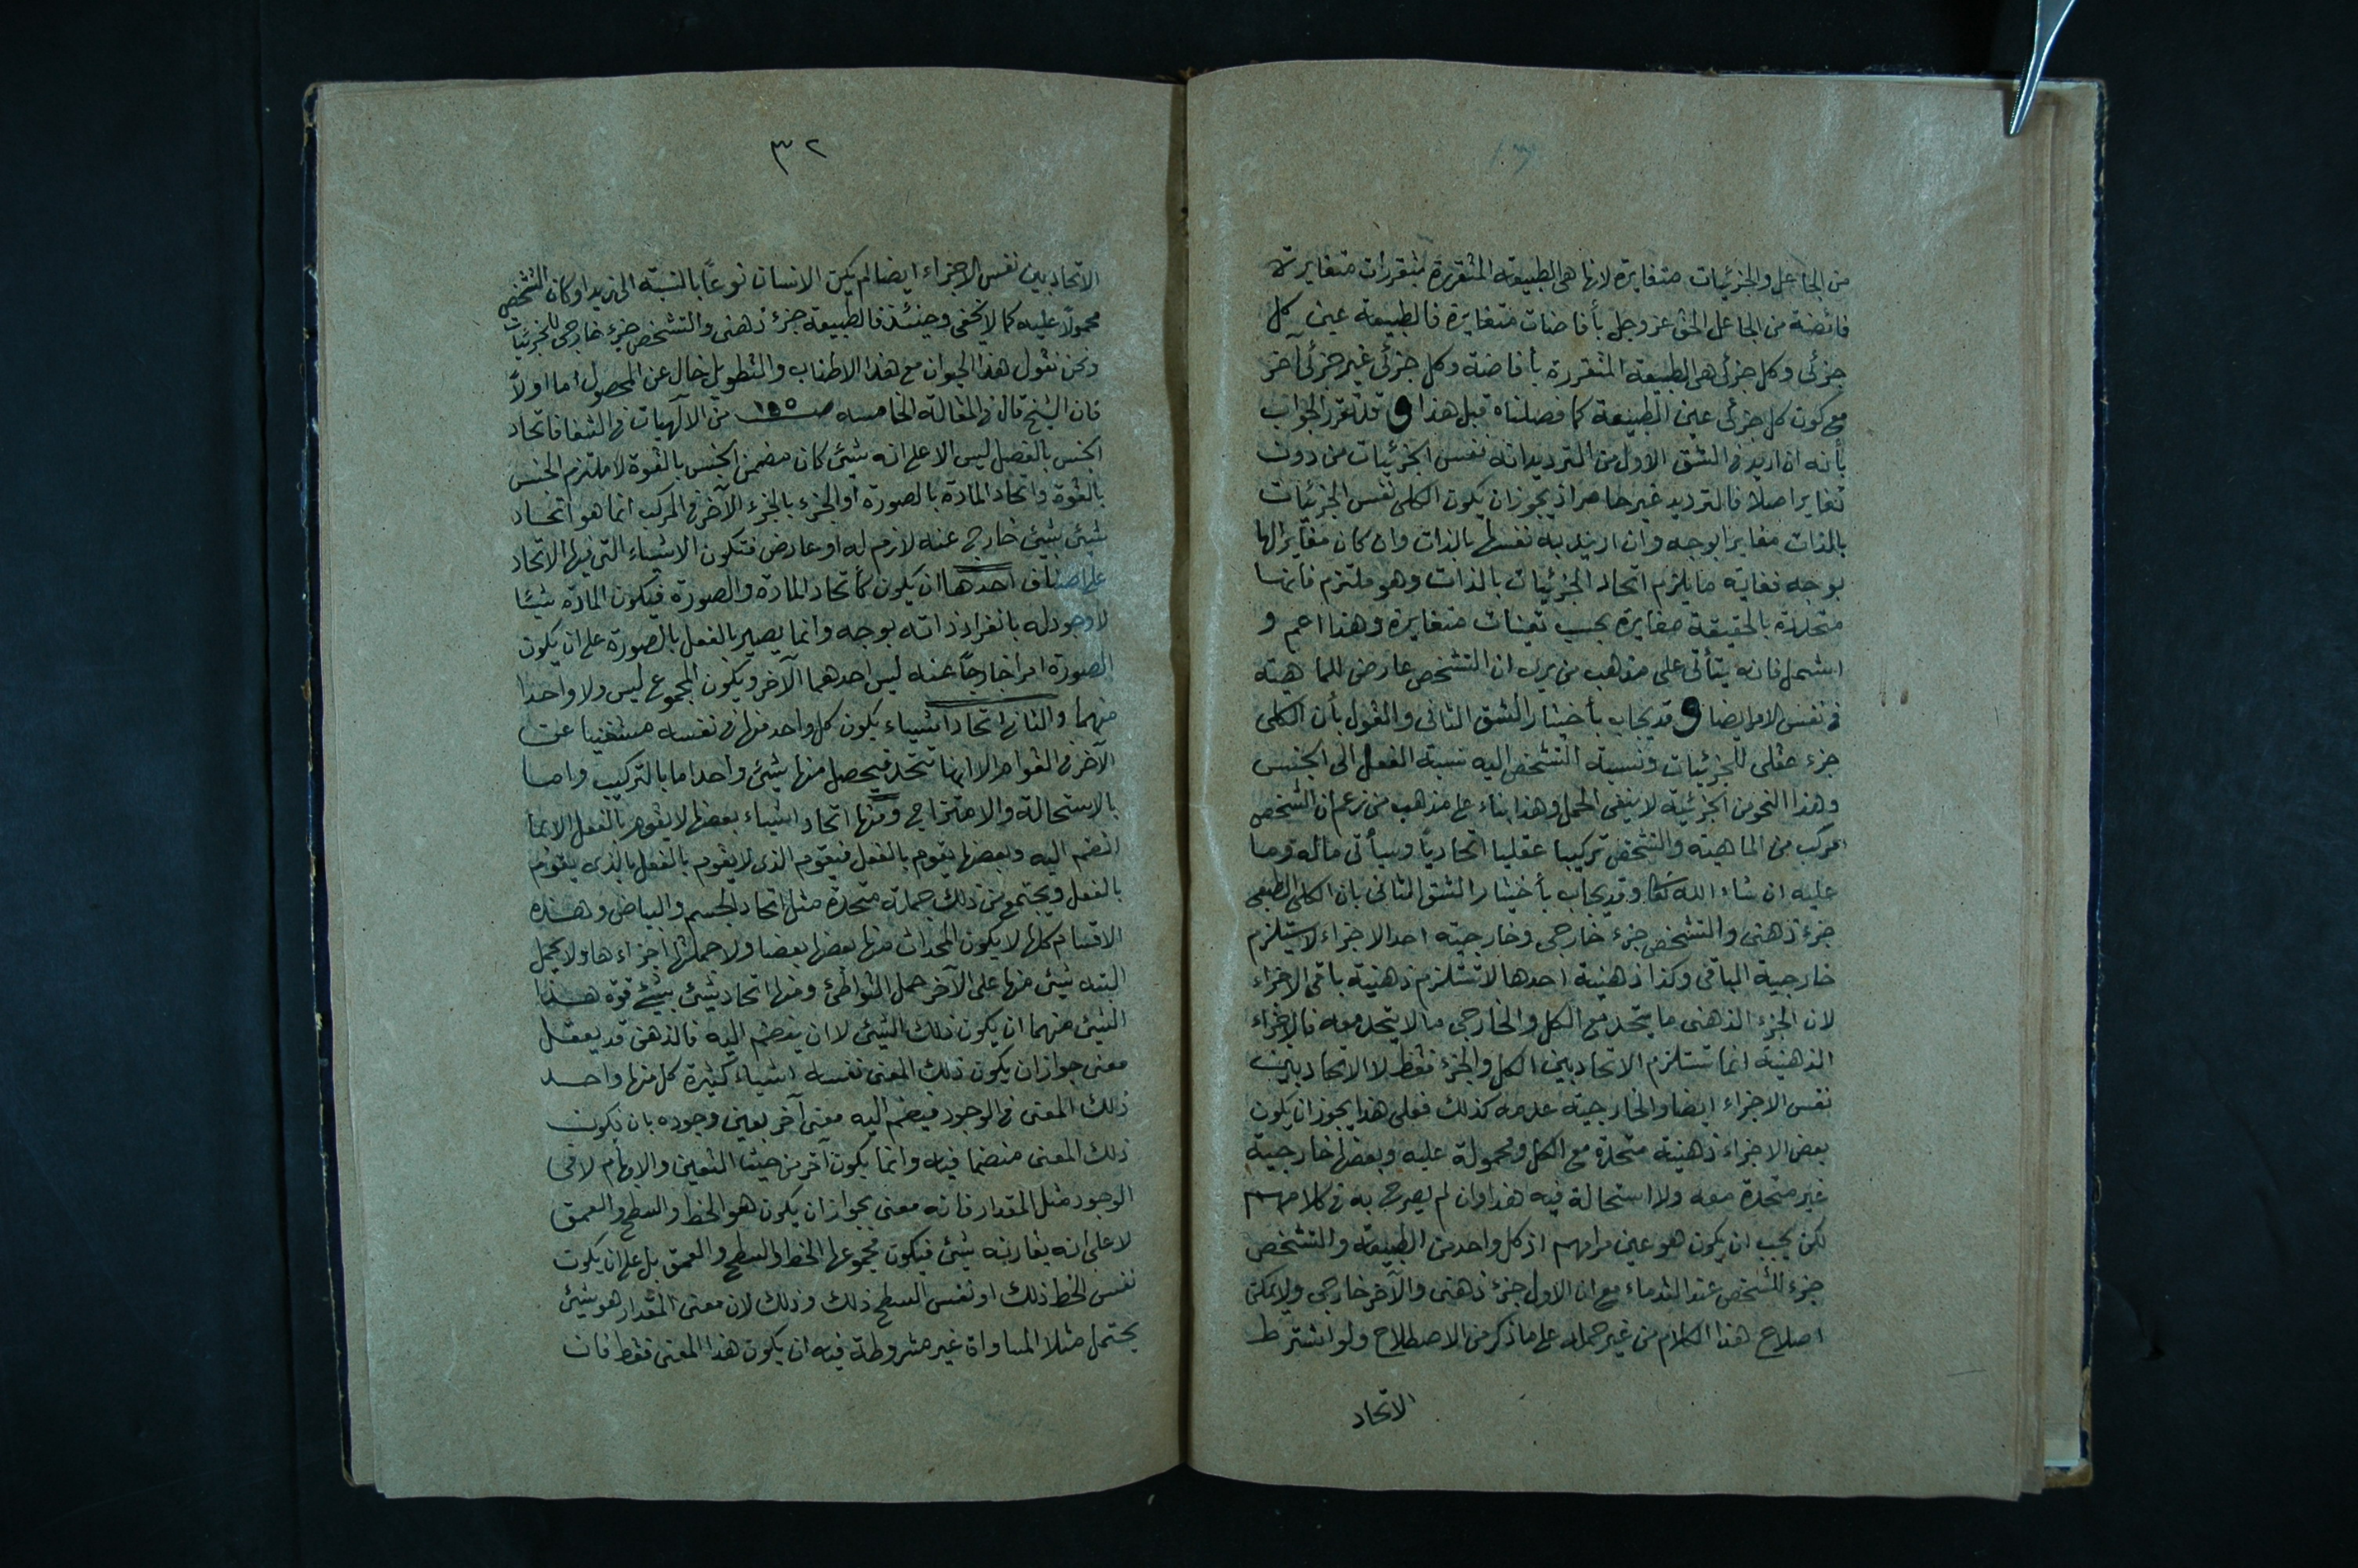 من الجاعل والجزئيات متغايرة لانها هى الطبيعة المتقررة بتقررات متغايرة
فائضة من الجاعل الحق عز وجل بأفاضات متغايرة فالطبيعة عين كل
جزئى وكل جزئى هى الطبيعة المتقررة بأفاضة وكل جزئى غير جزئى آخر
مع كون كل جزئى عين الطبيعة كما فصلناه قبل هذا و قد تقرر الجواب
بأنه ان اريد فى الشق الاول من الترديد انه نفس الجزئيات من دون
تغاير اصلا فالترديد غير حاصر اذ يجوز ان يكون الكلى نفس الجزئيات
بالذات مغايرا بوجه وان اريد به نفسها بالذات وان كان مغايرا لها
بوجه فغاية ما يلزم اتحاد الجزئيات بالذات وهو ملتزم فانها
متحدة بالحقيقة مغايرة بحسب تعينات متغايرة وهذا اعم و
اشمل فانه يتأتى على مذهب من يرى ان التشخص عارض للماهية
فى نفس الامر ايضا و قد يجاب بأختيار الشق الثانى والقول بأن الكلى
جزء عقلى للجزئيات ونسبة التشخص اليه نسبة الفصل الى الجنس
وهذا النحو من الجزئية لا ينفى الحمل وهذا بناء على مذهب من زعم ان الشخص
مركب من الماهية والتشخص تركيبا عقليا اتحاديًا وسيأتى ماله وما
عليه ان شاء الله تعا وقد يجاب بأختيار الشق الثانى بان الكلى الطبعى
جزء ذهنى والتشخص جزء خارجى وخارجية احد الاجزاء لا يستلزم
خارجية الباقى وكذا ذهنية احدها لا تستلزم ذهنية باقى الاجزاء
لان الجزء الذهنى ما يتحد مع الكل والخارجى ما لا يتحد معه فالاجزاء
الذهنية انما تستلزم الاتحاد بين الكل والجزء فقط لا الاتحاد بين
نفس الاجزاء ايضا والخارجية عدمه كذلك فعلى هذا يجوز ان يكون
بعض الاجزاء ذهنية متحدة مع الكل ومحمولة عليه وبعضها خارجية
غير متحدة معه ولا استحالة فيه هذا وان لم يصرح به فى كلامهم
لكن يجب ان يكون هو عين مرامهم اذ كل واحد من الطبيعة والتشخص
جزء للشخص عند القدماء مع ان الاول جزء ذهنى والآخر خارجى ولا يمكن
اصلاح هذا الكلام من غير حمله على ما ذكر من الاصطلاح ولو اشترط
الاتحاد
٣٢
الاتحاد بين نفس الاجزاء ايضا لم يكن الانسان نوعًا بالنسبة الى زيد او كان التشخص
محمولًا عليه كما لا يخفى وحينئذ فالطبيعة جزء ذهنى والتشخص جزء خارجى للجزئيات
ونحن نقول هذا الجواب مع هذا الاطناب والتطويل خال عن المحصول اما اولاً
فان الشيخ قال فى المقالة الخامسه صـ١٩٥ من الآلهيات فى الشفا فاتحاد
الجنس بالفصل ليس الا على انه شيئ كان مضمن الجنس بالقوة لا ملتزم الجنس
بالقوة واتحاد المادة بالصورة او الجزء بالجزء الآخر فى المركب انما هو اتحاد
شيئ بشيئ خارج عنه لازم له او عارض فتكون الاشياء التى فيها الاتحاد
على اصناف احدها ان يكون كأتحاد المادة والصورة فيكون المادة شيئا
لا وجود له بانفراد ذاته بوجه وانما يصير بالفعل بالصورة على ان يكون
الصورة امرا خارجًا عنه ليس احدهما الآخر ويكون المجموع ليس ولا واحدا
منهما والثانى اتحاد اشياء يكون كل واحد منها فى نفسه مستغنيا عن
الآخر فى القوام الا انها تتحد فيحصل منها شيئ واحد اما بالتركيب واما
بالاستحالة والامتزاج ومنها اتحاد اشياء بعضها لا يقوم بالفعل الا بما
انضم اليه وبعضها يقوم بالفعل فيقوم الذى لا يقوم بالفعل بالذى يقوم
بالفعل ويجتمع من ذلك جملة متحدة مثل اتحاد الجسم والبياض وهذه
الاقسام كلها لا يكون المتحدات منها بعضها بعضا ولا جملتها اجزاءها ولا يحمل
البته شيئ منها على الآخر حمل التواطئ ومنها اتحاد شيئ بشيئ قوة هذا
الشيئ منهما ان يكون ذلك الشيئ لا ان ينضم اليه فالذهن قد يعقل
معنى جواز ان يكون ذلك المعنى نفسه اشياء كثيرة كل منها واحد
ذلك المعنى فى الوجود فيضم اليه معنى آخر بعين وجوده بان يكون
ذلك المعنى منضما فيه وانما يكون آخر من حيث التعين والابهام لا فى
الوجود مثل المقدار فانه معنى يجواز ان يكون هو الخط والسطح والعمق
لا على انه يقارنه شيئ فيكون مجموعها الخط والسطح والعمق بل على ان يكون
نفس الخط ذلك او نفس السطح ذلك وذلك لان معنى المقدار هو شيئ
يحتمل مثلا المساواة غير مشروطة فيه ان يكون هذا المعنى فقط فان